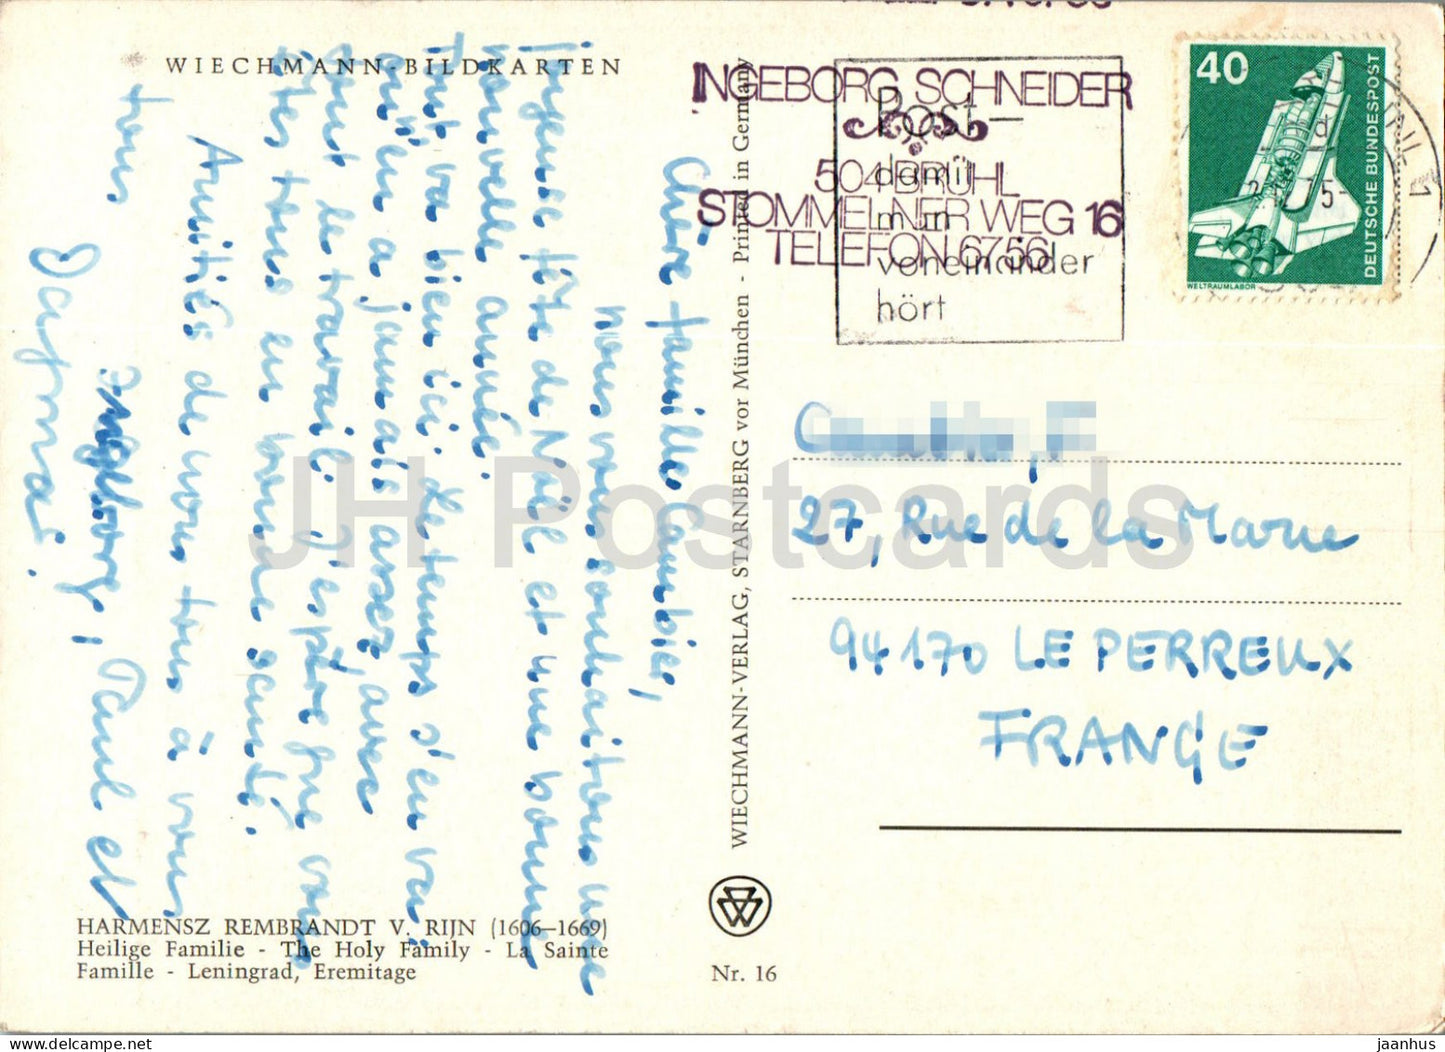 WIECHMANN-BILDKARTEN
Chère famille Cambier,
nous vous souhaitons une
joyeuse fête de Noël et une bonne
nouvelle année.
Tout va bien ici. Le temps s'en va
on n'en a jamais assez avec
tout le travail. J'espère que vous
êtes tous en bonne santé.
Amitiés de nous tous à vous
tous
Ingeborg, Paul et
Dagmar.
HARMENSZ REMBRANDT V. RIJN (1606–1669)
Heilige Familie - The Holy Family - La Sainte
Famille - Leningrad, Eremitage
WIECHMANN-VERLAG, STARNBERG vor München - Printed in Germany
Nr. 16
INGEBORG SCHNEIDER
504 BRÜHL
STOMMELNER WEG 16
TELEFON 6756
Post –
damit
man
voneinander
hört
40
DEUTSCHE BUNDESPOST
WELTRAUMLABOR
27, Rue de la Marne
94170 LE PERREUX
FRANCE
JH Postcards
www.delcampe.net
jaanhus